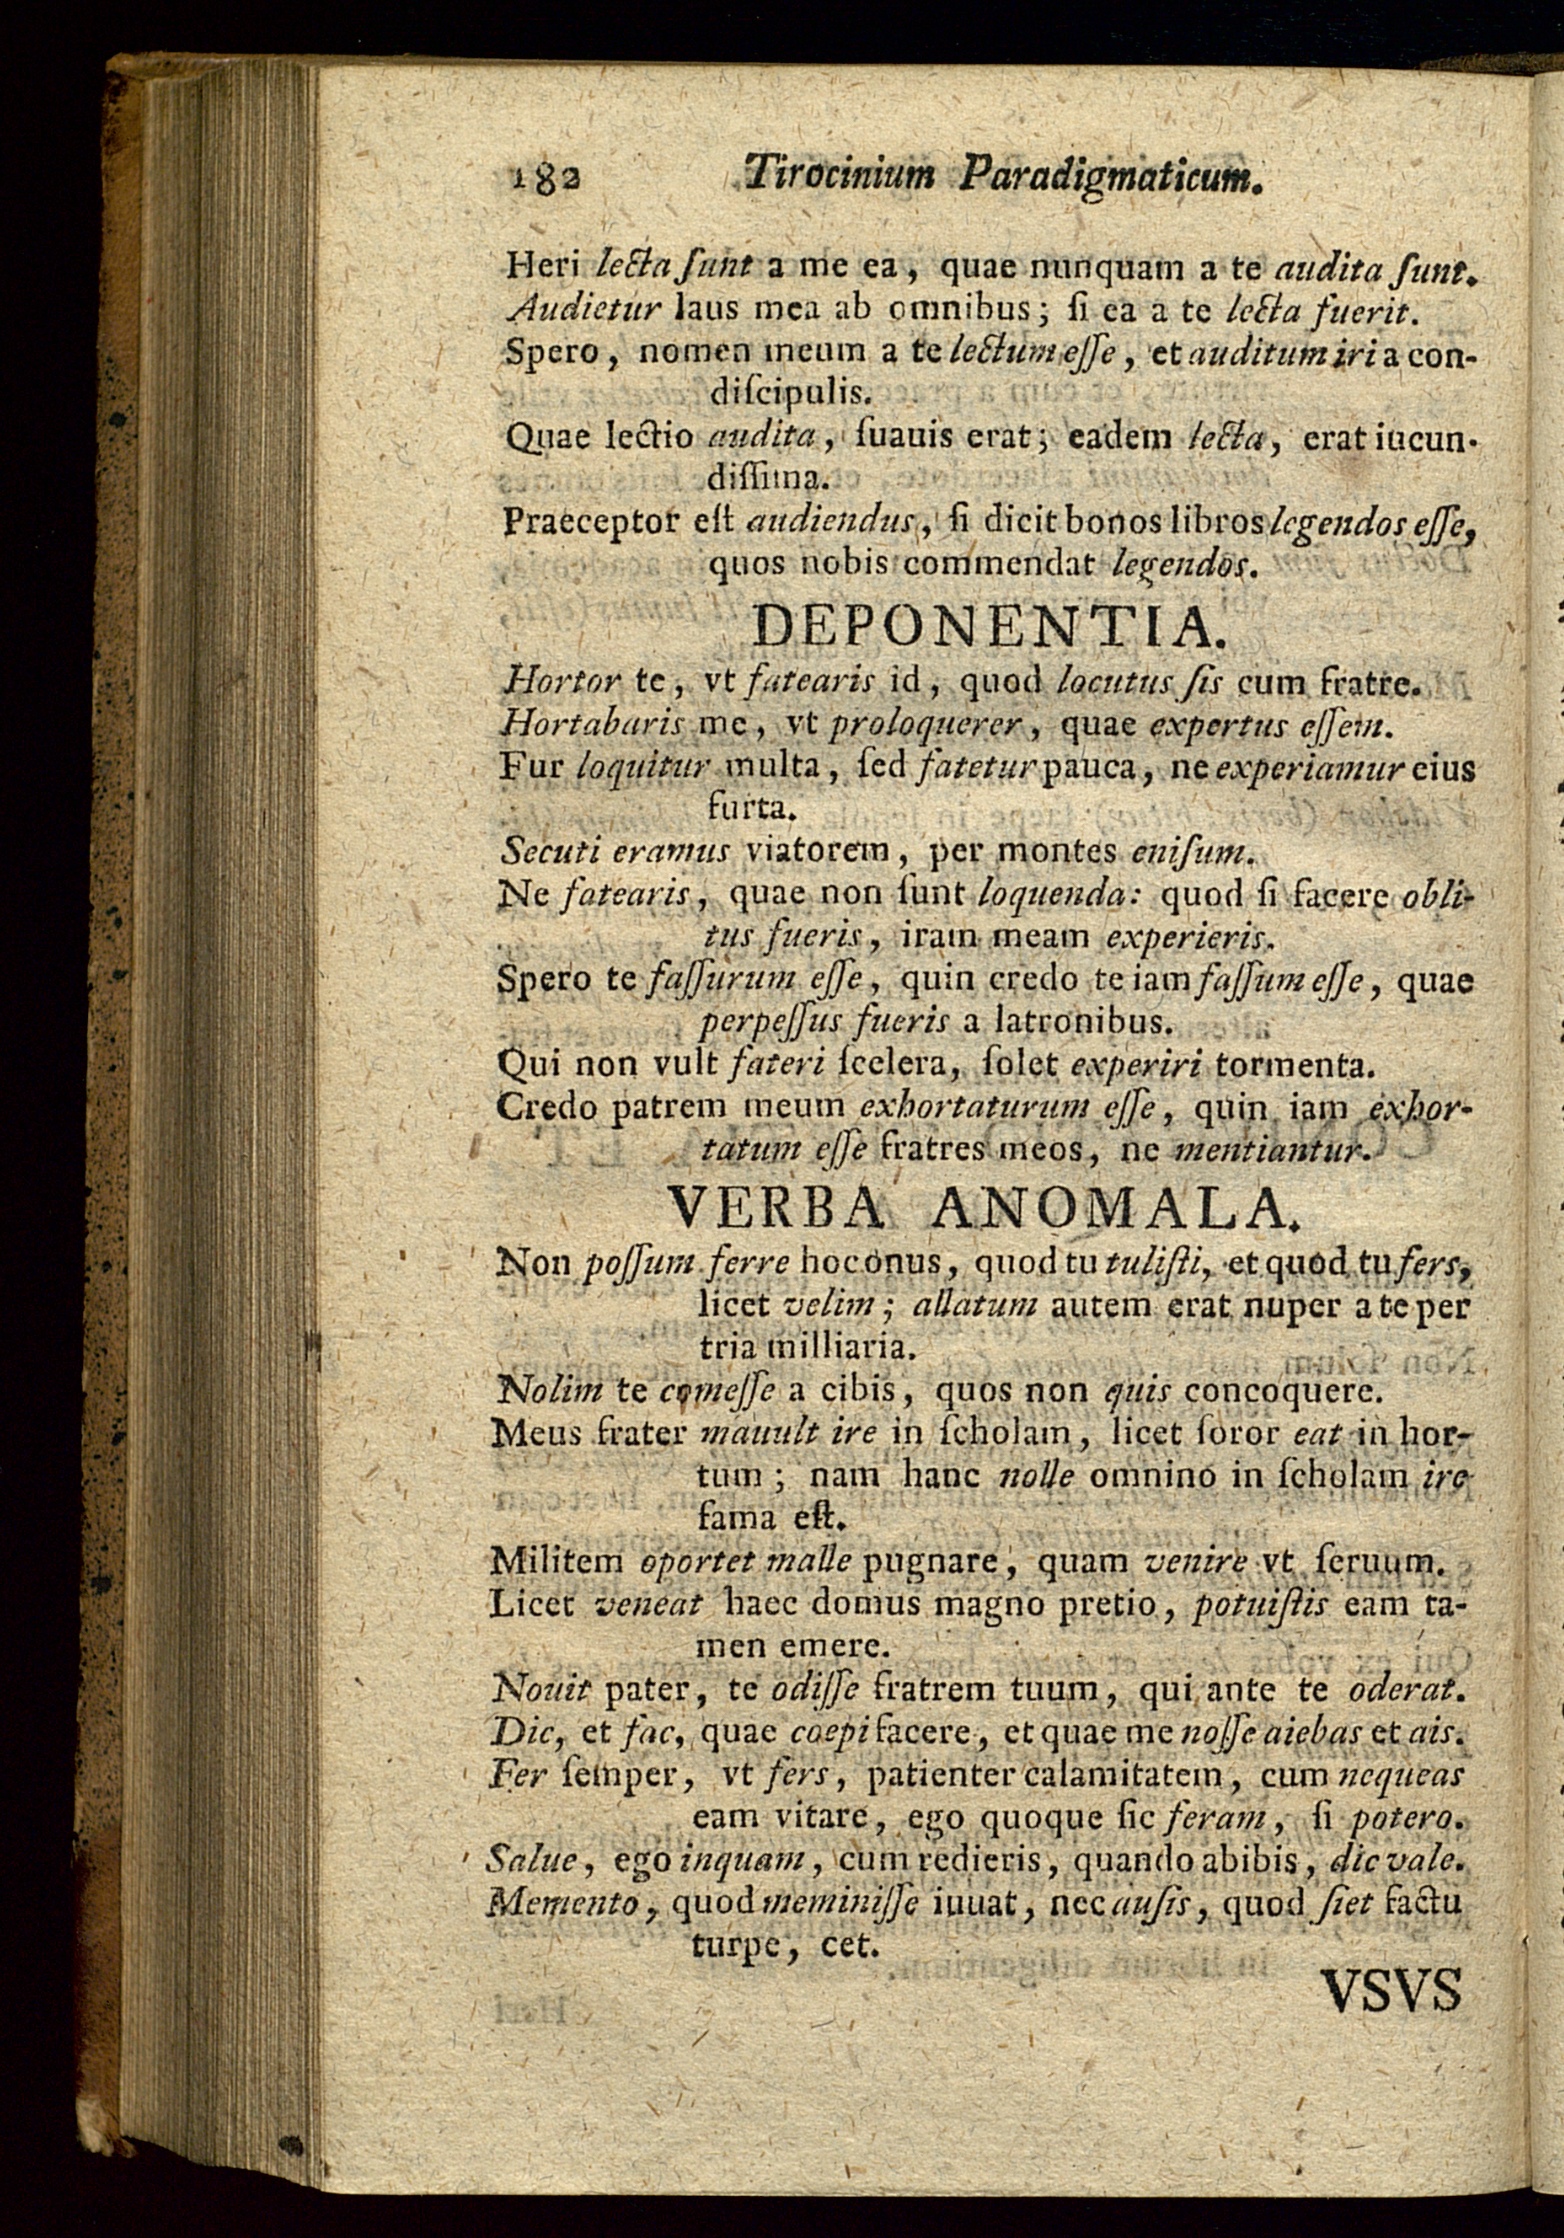 182 Tirocinium Paradigmaticum.
Heri lecta ſunt a me ea, quae nunquam a te audita ſunt.
Audietur laus mea ab omnibus; ſi ea a te lecta fuerit.
Spero, nomen meum a te lectum eſſe, et auditum iri a con-
diſcipulis.
Quae lectio audita, ſuauis erat; eadem lecta, erat iucun-
diſſima.
Praeceptor eſt audiendus, ſi dicit bonos libros legendos eſſe,
quos nobis commendat legendos.
DEPONENTIA.
Hortor te, vt fatearis id, quod locutus ſis cum fratre.
Hortabaris me, vt proloquerer, quae expertus eſſem.
Fur loquitur multa, ſed fatetur pauca, ne experiamur eius
furta.
Secuti eramus viatorem, per montes eniſum.
Ne fatearis, quae non ſunt loquenda: quod ſi facere obli-
tus fueris, iram meam experieris.
Spero te faſſurum eſſe, quin credo te iam faſſum eſſe, quae
perpeſſus fueris a latronibus.
Qui non vult fateri ſcelera, ſolet experiri tormenta.
Credo patrem meum exhortaturum eſſe, quin iam exhor-
tatum eſſe fratres meos, ne mentiantur.
VERBA ANOMALA.
Non poſſum ferre hoc onus, quod tu tuliſti, et quod tu fers,
licet velim; allatum autem erat nuper a te per
tria milliaria.
Nolim te comeſſe a cibis, quos non quis concoquere.
Meus frater mauult ire in ſcholam, licet ſoror eat in hor-
tum; nam hanc nolle omnino in ſcholam ire
fama eſt.
Militem oportet malle pugnare, quam venire vt ſeruum.
Licet veneat haec domus magno pretio, potuiſtis eam ta-
men emere.
Nouit pater, te odiſſe fratrem tuum, qui ante te oderat.
Dic, et fac, quae coepi facere, et quae me noſſe aiebas et ais.
Fer ſemper, vt fers, patienter calamitatem, cum nequeas
eam vitare, ego quoque ſic feram, ſi potero.
Salue, ego inquam, cum redieris, quando abibis, dic vale.
Memento, quod meminiſſe iuuat, nec auſis, quod ſiet factu
turpe, cet.
VSVS